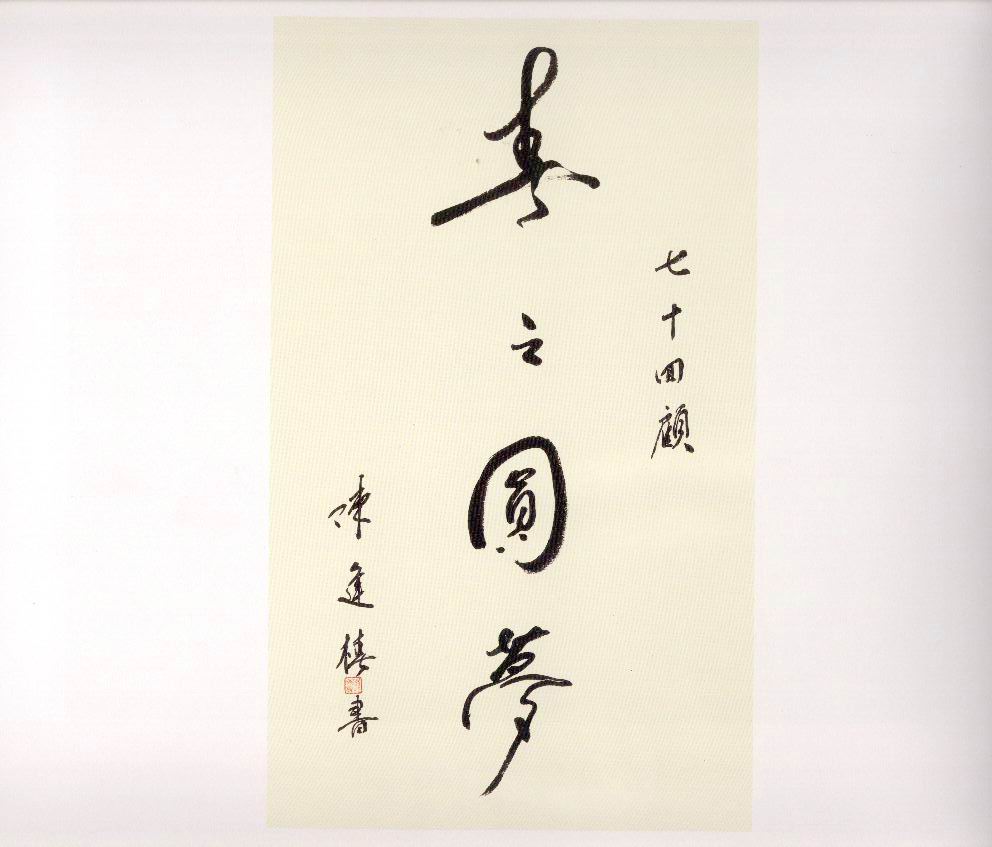 七十回顧
春之圓夢
陳進椿書